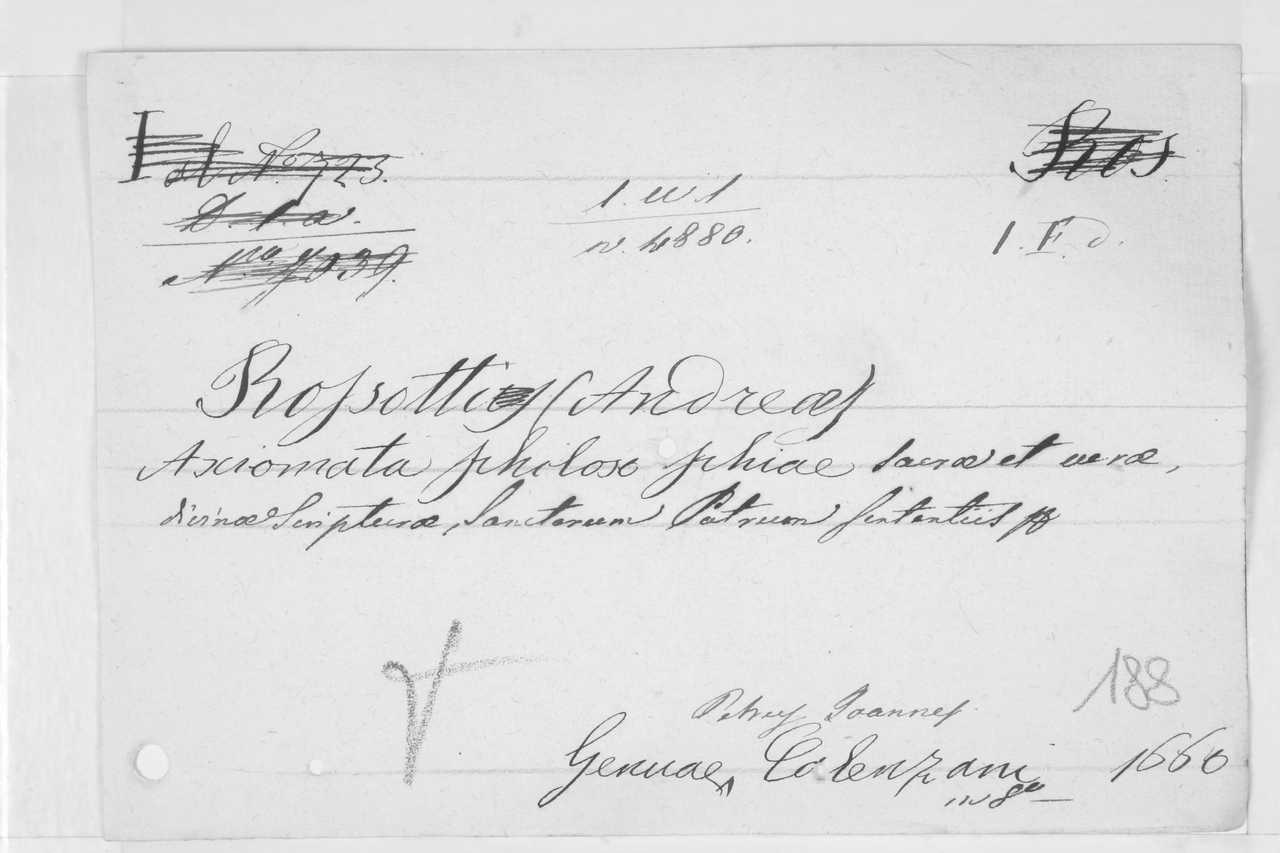 ad No. 723.
D. 1. a.
Nro 7039.
1. W. 1
n. 4880.
Ros
1. F. d.
Rossotti (Andreæ)
Axiomata philoso phiae sacræ et veræ,
divinæ Scripturæ, Sanctorum Patrum sententiis
188
Petrus Joannes
Genuae, Calenzani 1660
in 8º